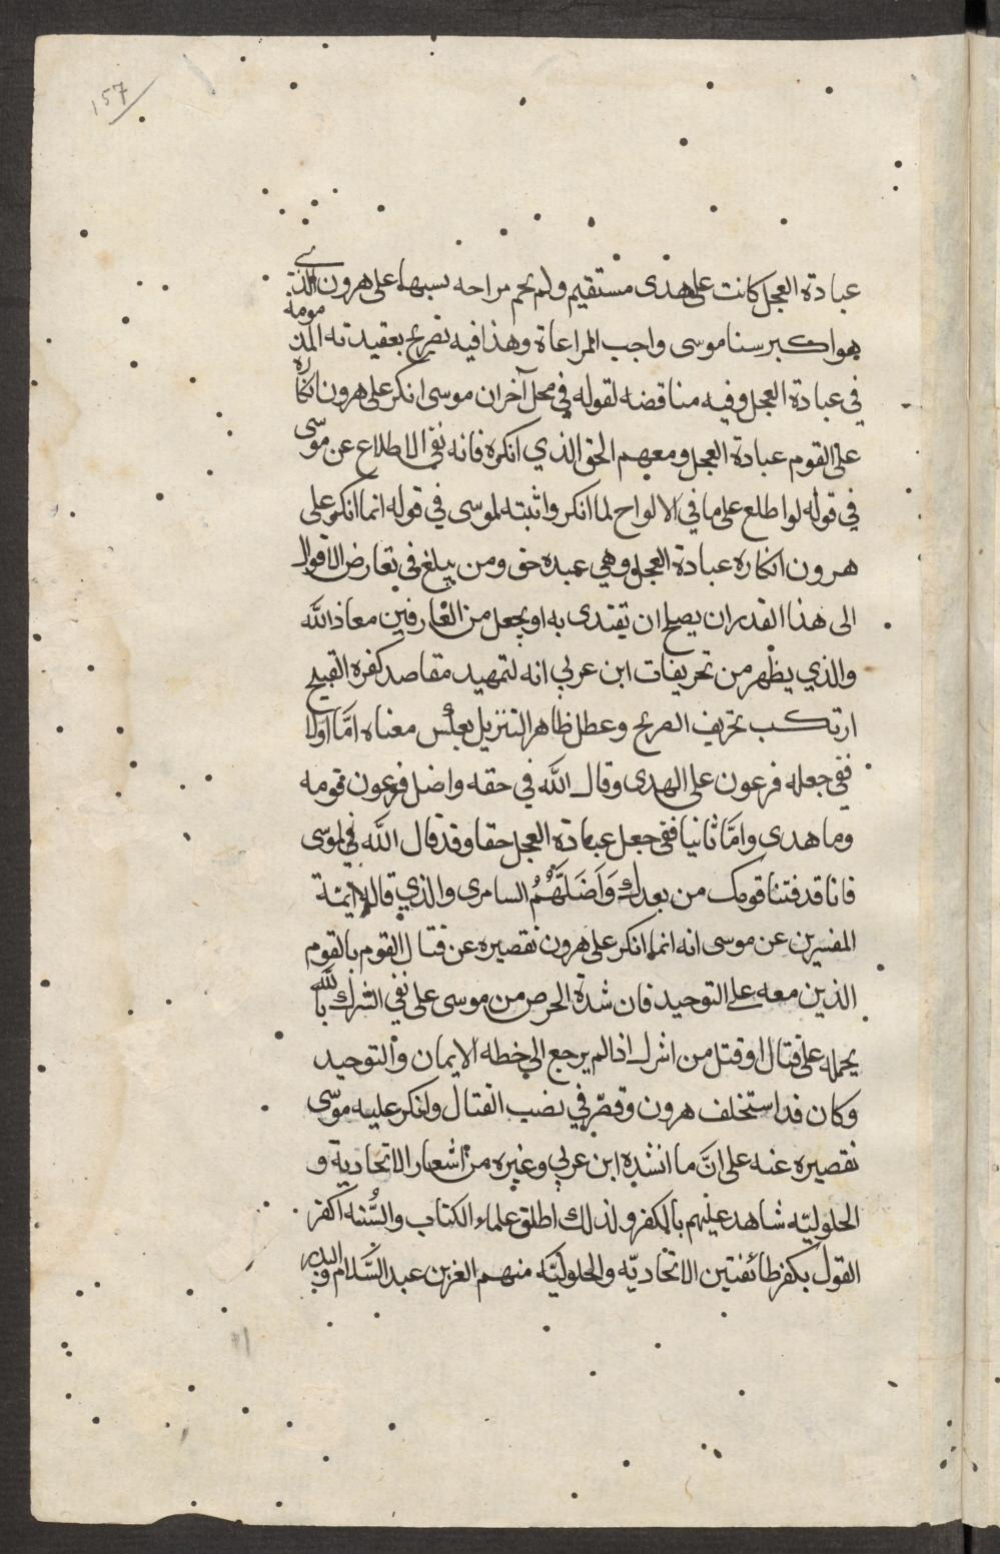 157
عبادة العجل كانت على هدى مستقيم ولم يحم مراحه بسبها على هرون الذي
هو اكبر سنا موسى واجب المراعاة وهذا فيه تصريح بعقيدته المذمومة
في عبادة العجل وفيه مناقضه لقوله في محل آخر ان موسى انكر على هرون انكاره
على القوم عبادة العجل ومعهم الحق الذي انكره فانه نفى الاطلاع عن موسى
في قوله لو اطلع على ما في الالواح لما انكر واثبته لموسى في قوله انما انكر على
هرون انكاره عبادة العجل وهي عبده حق ومن يبلغ في تعارض الاقوال
الى هذا القدر ان يصلح ان تقتدى به او يجعل من العارفين معاذ الله
والذي يظهر من تحريفات ابن عربي انه لتمهيد مقاصد كفره القبيح
ارتكب تحريف الصريح وعطل ظاهر التنزيل بعكس معناه امّا اولا
ففي جعله فرعون على الهدى وقال الله في حقه واضل فرعون قومه
وما هدى وامّا ثانيا ففي جعل عبادة العجل حقا وقد قال الله في لموسى
فانا قد فتنا قومك من بعدك وَاَضَلَّهُمُ السامرى والذي قال الائمة
المفسرين عن موسى انه انما انكر على هرون تقصيره عن قتال القوم بالقوم
الذين معه على التوحيد فان شدة الحرص من موسى على نفي الشرك بالله
يحمله على قتال او قتل من اشرك اذا لم يرجع الى خطه الايمان والتوحيد
وكان قد استخلف هرون وقصّر في نصب القتال وانكر عليه موسى
تقصيره عنه على انَّ ما انشده ابن عربي وغيره من اشعار الاتحادية و
الحلوليّه شاهد عليهم بالكفر ولذلك اطلق علماء الكتاب والسُّنه اكفر
القول بكفر طائفتين الاتحاديّه والحلوليّه منهم العز بن عبد السَّلام والبدر